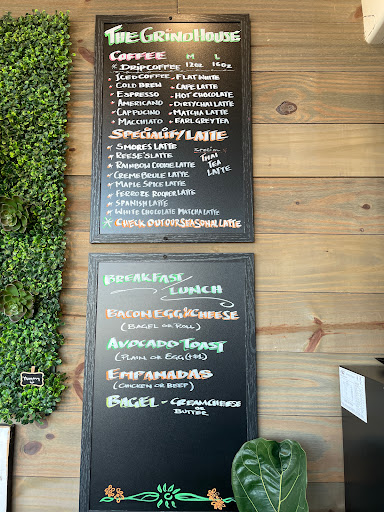 THE GRIND HOUSE
COFFEE M L
* DRIP COFFEE 12oz 16oz
ICED COFFEE • FLAT WHITE
COLD BREW • CAFE LATTE
ESPRESSO • HOT CHOCOLATE
AMERICANO • DIRTY CHAI LATTE
CAPPUCINO • MATCHA LATTE
MACCHIATO • EARL GREY TEA
SPECIALITY LATTE
SMORES LATTE
REESE'S LATTE
RAINBOW COOKIE LATTE
CREME BRULE LATTE
MAPLE SPICE LATTE
FERRORE ROCHER LATTE
SPANISH LATTE
WHITE CHOCOLATE MATCHA LATTE
THAI
TEA
LATTE
* CHECK OUT OUR SEASONAL LATTE
BREAKFAST
LUNCH
BACON EGG & CHEESE
(BAGEL OR ROLL)
AVOCADO TOAST
(PLAIN OR EGG
EMPANADAS
(CHICKEN OR BEEF)
BAGEL - CREAM CHEESE
OR
BUTTER